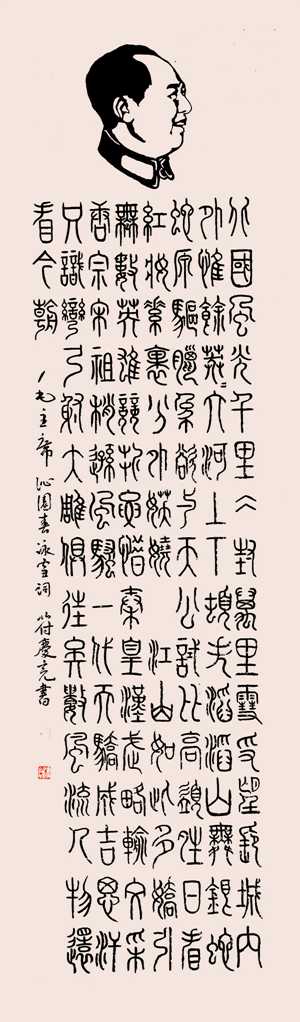 北國風光千里冰封萬里雪飄望長城內
外惟餘莽〻大河上下頓失滔滔山舞銀蛇
蛇原驅臘象欲與天公試比高須晴日看
紅妝素裹分外妖嬈江山如此多嬌引
無數英雄競折腰惜秦皇漢武略輸文采
唐宗宋祖稍遜風騷一代天驕成吉思汗
只識彎弓射大雕俱往矣數風流人物還
看今朝
毛主席沁園春詠雪詞 符慶亮書